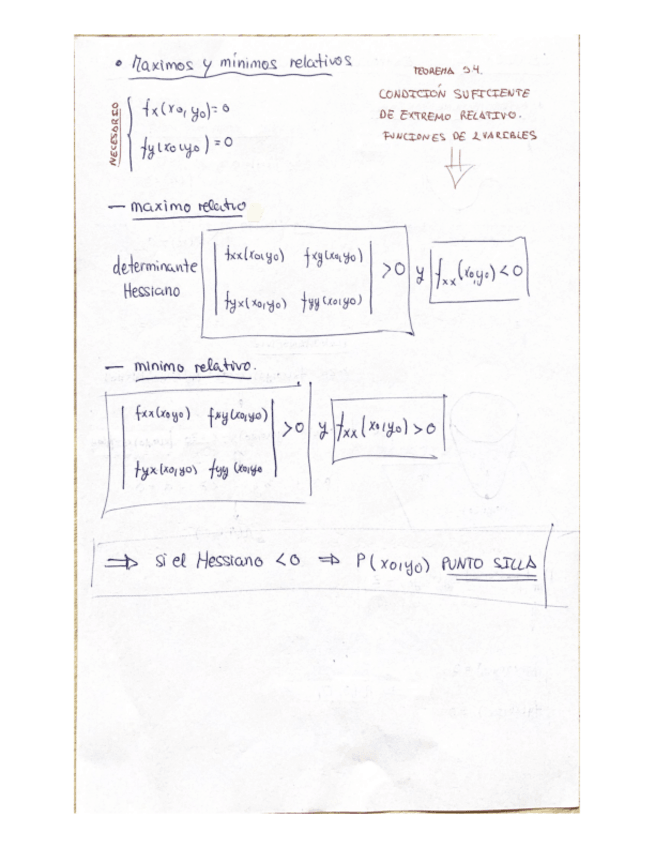 • Maximos y mínimos relativos
TEOREMA 5.4.
CONDICIÓN SUFICIENTE
DE EXTREMO RELATIVO.
FUNCIONES DE 2 VARIABLES
NECESARIO
fx(x0,y0)=0
fy(x0,y0)=0
— maximo relativo
determinante
Hessiano
fxx(x0,y0) fxy(x0,y0)
fyx(x0,y0) fyy(x0,y0)
>0 y fxx(x0,y0)<0
— minimo relativo.
fxx(x0y0) fxy(x0,y0)
fyx(x0,y0) fyy(x0,y0
>0 y fxx(x0,y0)>0
⇒ si el Hessiano <0 ⇒ P(x0,y0) PUNTO SILLA